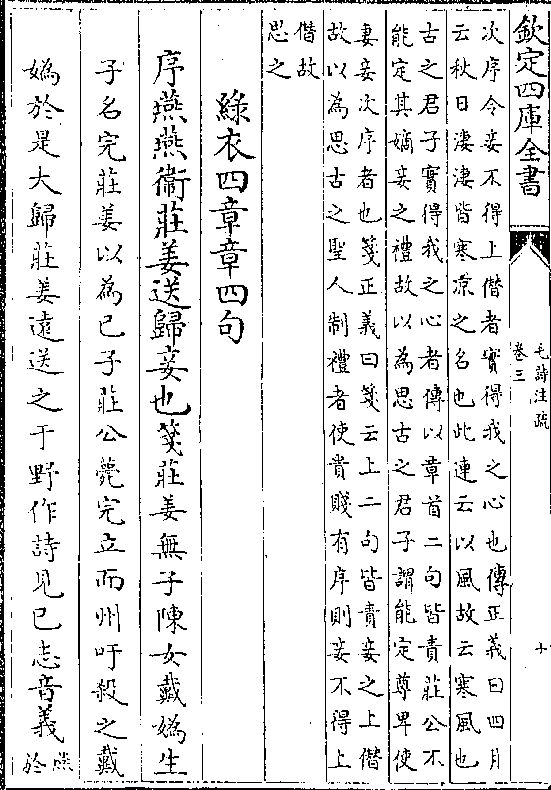 欽定四庫全書
毛詩注疏
卷三
十
次序令妾不得上僭者實得我之心也傳正義曰四月
云秋日淒淒皆寒凉之名也此連云以風故云寒風也
古之君子實得我之心者傳以章首二句皆責莊公不
能定其嫡妾之禮故以為思古之君子謂能定尊卑使
妻妾次序者也箋正義曰箋云上二句皆責妾之上僭
故以為思古之聖人制禮者使貴賤有序則妾不得上
僭故
思之
綠衣四章章四句
序燕燕衞莊姜送歸妾也箋莊姜無子陳女戴媯生
子名完莊姜以為己子莊公薨完立而州吁殺之戴
媯於是大歸莊姜遠送之于野作詩見己志音義燕
於